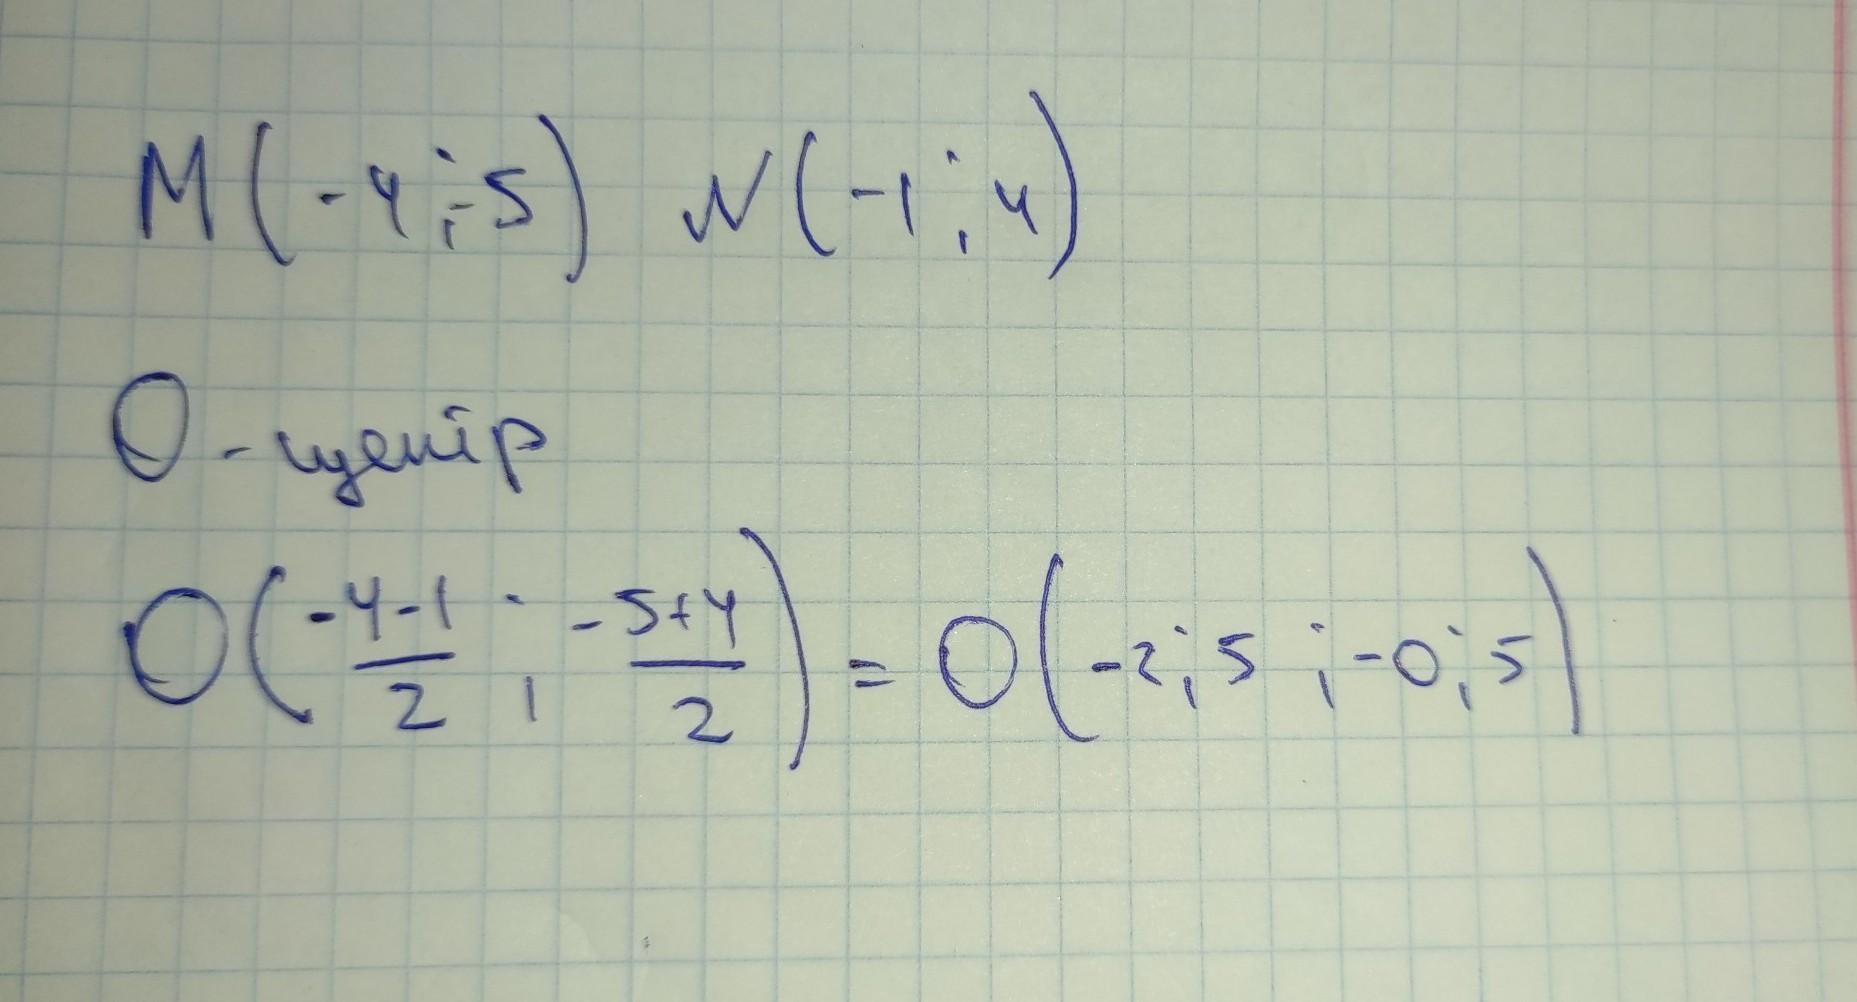 M(-4;-5) N(-1;4)
O-центр
O(\frac{-4-1}{2};\frac{-5+4}{2})=O(-2;5;-0;5)